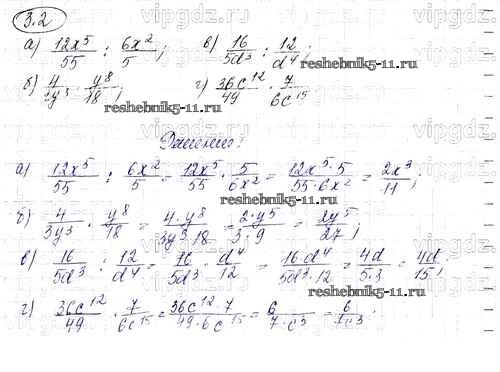 3.2
а) 12x⁵/55 : 6x²/5; в) 16/5d³ : 12/d⁴;
б) 4/3y³ · y⁸/18; г) 36c¹²/49 · 7/6c¹⁵
reshebnik5-11.ru
reshebnik5-11.ru
а) 12x⁵/55 : 6x²/5 = 12x⁵/55 · 5/6x² = 12x⁵·5/55·6x² = 2x³/11;
б) 4/3y³ · y⁸/18 = 4·y⁸/3y³·18 = 2·y⁵/3·9 = 2y⁵/27;
в) 16/5d³ : 12/d⁴ = 16/5d³ · d⁴/12 = 16·d⁴/5d³·12 = 4d/5·3 = 4d/15;
г) 36c¹²/49 · 7/6c¹⁵ = 36c¹²·7/49·6c¹⁵ = 6/7·c³ = 6/7c³.
reshebnik5-11.ru
vipgdz.ru